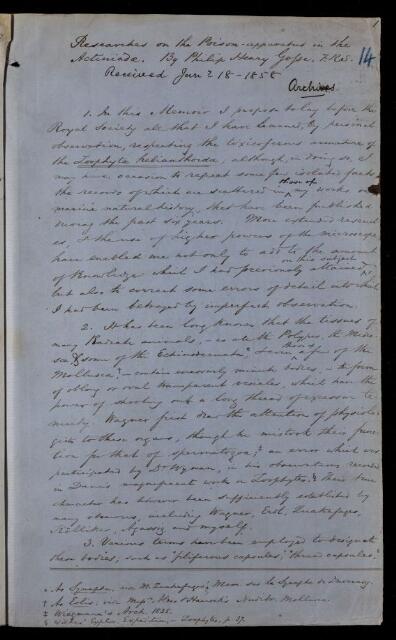 Researches on the Poison-apparatus in the
Actiniadæ. By Philip Henry Gosse. F.R.S.
14
Received June 18 - 1858
Archives
1. In this Memoir I propose to lay before the
Royal Society all that I have learned, by personal
observation, respecting the toxiciferous armature of
the Zoophyta helianthoida, although, in doing so, I
may have occasion to repeat some few isolated facts
the records of which are scattered in those of my works on
marine natural history, that have been published
during the past six years. More extended research-
es, & the use of higher powers of the microscope
have enabled me not only to add to the amount
of knowledge which I had previously attained on this subject,
but also to correct some errors of detail into which
I had been betrayed by imperfect observation.
2. It has been long known that the tissues of
many Radiate animals, as the Polypes, the Medu-
sæ & some of the Echinodermata, & even of the
Mollusca, contain excessively minute bodies, in the form
of oblong or oval transparent vesicles, which have the
power of shooting out a long thread of excessive te-
nuity. Wagner first drew the attention of physiolo-
gists to these organs, though he mistook their func-
tion for that of spermatozoa; an error which was
participated by Dr Wyman, in his observations recorded
in Dana's magnificent work on Zoophytes. Their true
character has however been sufficiently established by
many observers, including Wagner, Erdl, Quatrefages,
Kölliker, Agassiz and myself.
3. Various terms have been employed to designate
these bodies, such as "filiferous capsules," "thread capsules,"
As Synapta, vide M. Quatrefages' Mem. sur la Synapte de Duvernoy.
As Eolis; vide Messrs. Alder & Hancock's Nudibr. Mollusca.
Wiegmann's Arch. 1835.